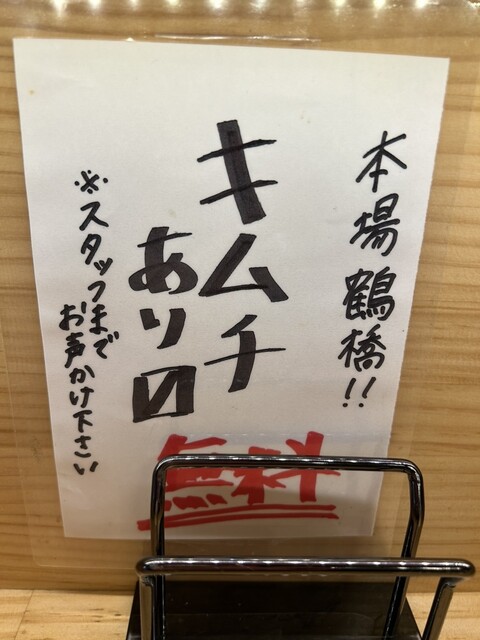 本場 鶴橋!!
キムチ
あり〼
無料
※スタッフまで
お声かけ下さい